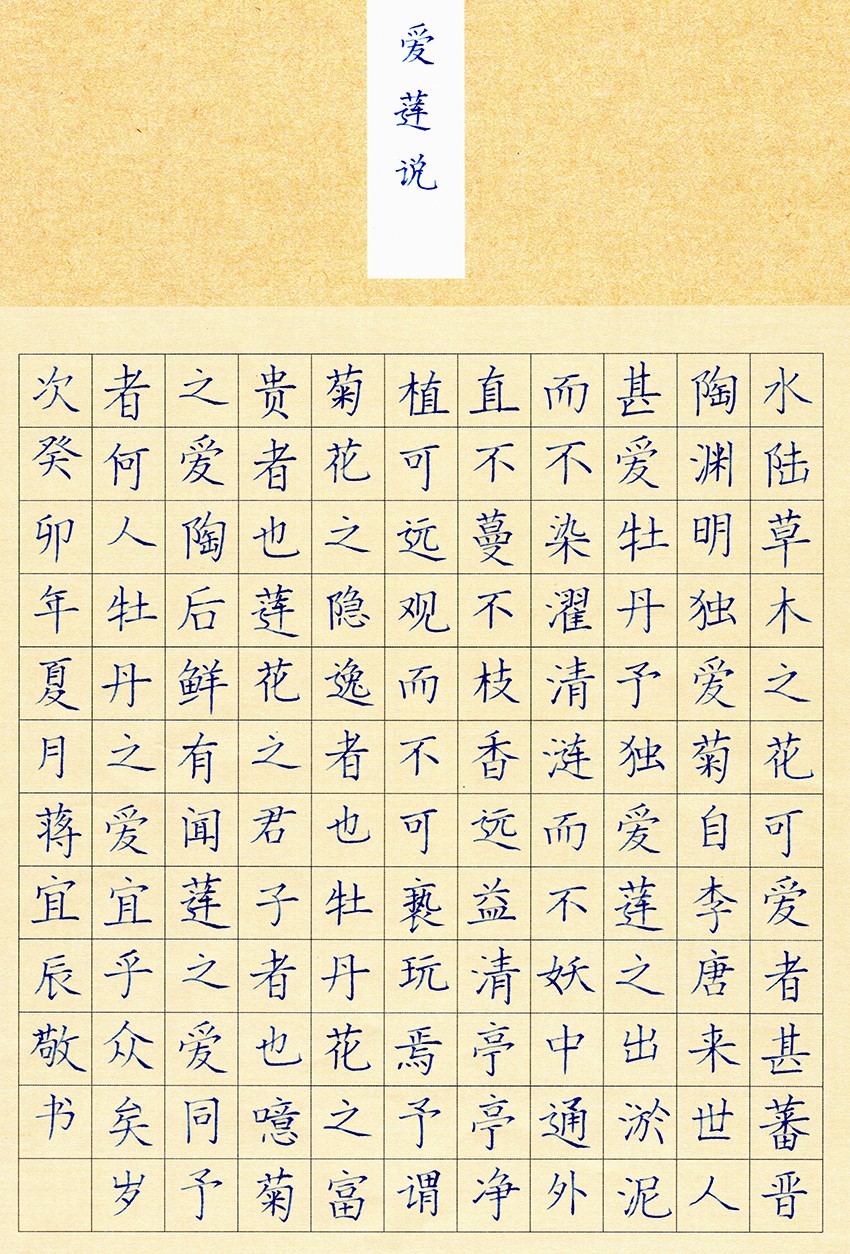 爱莲说
水陆草木之花可爱者甚蕃晋
陶渊明独爱菊自李唐来世人
甚爱牡丹予独爱莲之出淤泥
而不染濯清涟而不妖中通外
直不蔓不枝香远益清亭亭净
植可远观而不可亵玩焉予谓
菊花之隐逸者也牡丹花之富
贵者也莲花之君子者也噫菊
之爱陶后鲜有闻莲之爱同予
者何人牡丹之爱宜乎众矣岁
次癸卯年夏月蒋宜辰敬书